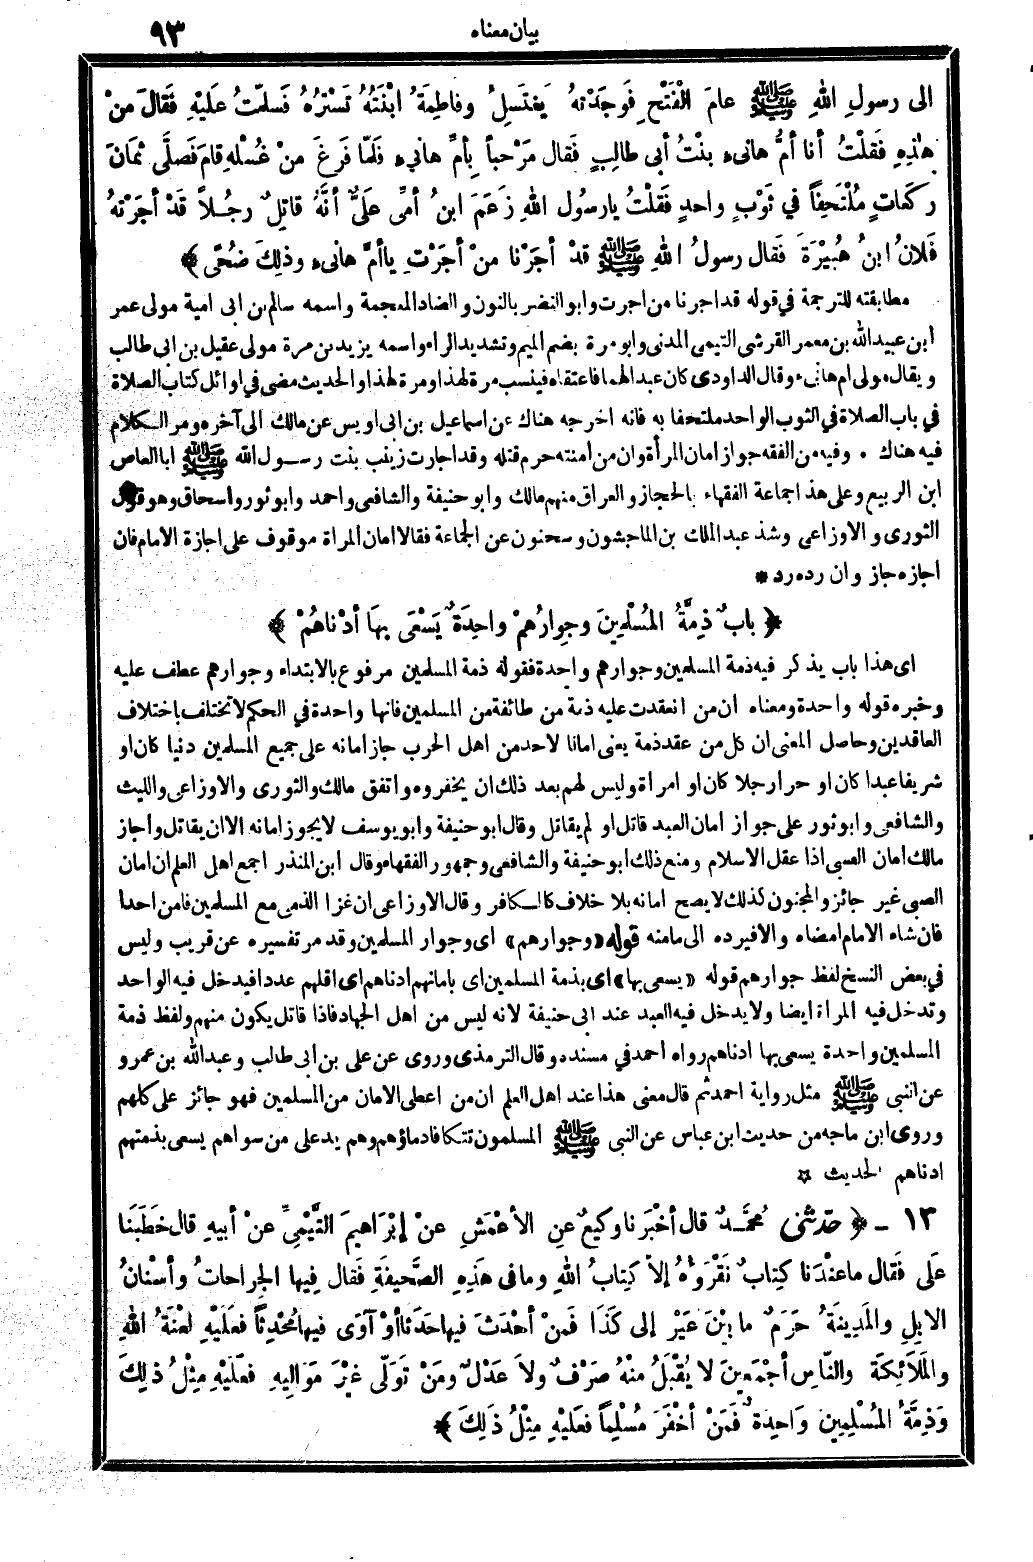 بيان معناه ٩٣
الى رسولِ اللهِ ﷺ عامَ الْفَتْحِ فَوجَدْتهُ يَغتَسِلُ وفاطِمَةُ ابْنَتُهُ تَسْتُرُهُ فَسلّمْتُ عَليْهِ فَقالَ مَنْ
هٰذِهِ فَقلْتُ أنا أمُّ هانىء بنْتُ أبى طالِبٍ فَقال مَرْحباً بِأمِّ هانىء فَلمّا فَرغَ منْ غُسْلهِ قامَ فَصلَّى ثمَانَ
ركَعاتٍ مُلْتَحِفاً في ثَوْبٍ واحدٍ فَقلْتُ يارسُول اللهِ زَعَمَ ابنُ أمِّى علَىٌّ أنَّهُ قاتِلٌ رجُلاً قَدْ أجَرْتهُ
فَلانُ ابنُ هُبيْرَةَ فَقال رسولُ اللهِ ﷺ قدْ أجَرْنا منْ أجَرْتِ ياأمَّ هانىء وذلِكَ ضُحًى ﴾
مطابقته للترجمة في قوله قد اجرنا من اجرت وابو النضر بالنون والضاد المعجمة واسمه سالم بن ابى امية مولى عمر
ابن عبيد الله بن معمر القرشى التيمى المدنى وابو مرة بضم الميم وتشديد الراء واسمه يزيد بن مرة مولى عقيل بن ابى طالب
ويقال مولى ام هانىء وقال الداودى كان عبدا لهما فاعتقاه فينسب مرة لهذا ومرة لهذا والحديث مضى في اوائل كتاب الصلاة
في باب الصلاة في الثوب الواحد ملتحفا به فانه اخرجه هناك عن اسماعيل بن ابى اويس عن مالك الى آخره ومر الكلام
فيه هناك . وفيه من الفقه جواز امان المرأة وان من امنته حرم قتله وقد اجارت زينب بنت رسول الله ﷺ ابا العاص
ابن الربيع وعلى هذا جماعة الفقهاء بالحجاز والعراق منهم مالك وابو حنيفة والشافعى واحمد وابو ثور واسحاق وهو قول
الثورى والاوزاعى وشذ عبد الملك بن الماجشون وسحنون عن الجماعة فقالا امان المرأة موقوف على اجازة الامام فان
اجازه جاز وان رده رد *
﴿ بابٌ ذِمَّةُ المُسْلِمِينَ وجِوارُهمْ واحِدَةٌ يَسْعَى بِهَا أدْناهُمْ ﴾
اى هذا باب يذكر فيه ذمة المسلمين وجوارهم واحدة فقوله ذمة المسلمين مرفوع بالابتداء وجوارهم عطف عليه
وخبره قوله واحدة ومعناه ان من انعقدت عليه ذمة من طائفة من المسلمين فانها واحدة في الحكم لا تختلف باختلاف
العاقدين وحاصل المعنى ان كل من عقد ذمة يعنى امانا لاحد من اهل الحرب جاز امانه على جميع المسلمين دنيا كان او
شريفا عبدا كان او حرا رجلا كان او امرأة وليس لهم بعد ذلك ان يخفروه واتفق مالك والثورى والاوزاعى والليث
والشافعى وابو ثور على جواز امان العبد قاتل او لم يقاتل وقال ابو حنيفة وابو يوسف لا يجوز امانه الا ان يقاتل وأجاز
مالك أمان الصبى اذا عقل الاسلام ومنع ذلك ابو حنيفة والشافعى وجمهور الفقهاء وقال ابن المنذر اجمع اهل العلم ان امان
الصبى غير جائز والمجنون كذلك لا يصح امانه بلا خلاف كالكافر وقال الاوزاعى ان غزا الذمى مع المسلمين فامن احدا
فان شاء الامام امضاه والا فيرده الى مامنه قوله «وجوارهم» اى وجوار المسلمين وقد مر تفسيره عن قريب وليس
في بعض النسخ لفظ جوارهم قوله «يسعى بها» اى بذمة المسلمين اى بامانهم ادناهم اى اقلهم عددا فيدخل فيه الواحد
وتدخل فيه المرأة ايضا ولا يدخل فيه العبد عند ابى حنيفة لانه ليس من اهل الجهاد فاذا قاتل يكون منهم ولفظ ذمة
المسلمين واحدة يسعى بها ادناهم رواه احمد في مسنده وقال الترمذى وروى عن على بن ابى طالب وعبد الله بن عمرو
عن النبى ﷺ مثل رواية احمد ثم قال معنى هذا عند اهل العلم ان من اعطى الامان من المسلمين فهو جائز على كلهم
وروى ابن ماجه من حديث ابن عباس عن النبى ﷺ المسلمون تتكافا دماؤهم وهم يد على من سواهم يسعى بذمتهم
ادناهم الحديث ☆
١٣ - ﴿ حدّثنى مُحمَّدٌ قال أخْبَرنا وكِيعٌ عنِ الأعْمَشِ عنْ إبْرَاهيمَ التَّيْمِيِّ عنْ أبيهِ قال خَطَبَنا
علَى فَقال ماعنْدَنا كِتابٌ نَقْرَؤهُ إلاّ كِتابُ اللهِ ومافى هَذِهِ الصَّحيفَةِ فَقال فِيها الجِراحاتُ وأسْنانُ
الابلِ والمَدِينَةُ حَرَمٌ مابيْنَ عَيْرٍ إلى كَذَا فَمنْ أحْدَثَ فيها حَدَثاً أوْ آوَى فيها مُحْدِثاً فعلَيْهِ لعْنَةُ اللهِ
والمَلاَئِكَةِ والنَّاسِ أجْمَعِينَ لا يُقْبَلُ منْهُ صَرْفٌ ولاَ عَدْلٌ ومَنْ تَولَّى غيْرَ مَوَاليهِ فعلَيْهِ مِثْلُ ذلِكَ
وَذِمَّةُ المُسْلِمِينَ وَاحِدةٌ فَمَنْ أخْفَرَ مُسْلِماً فعلَيْهِ مِثْلُ ذَلِكَ ﴾